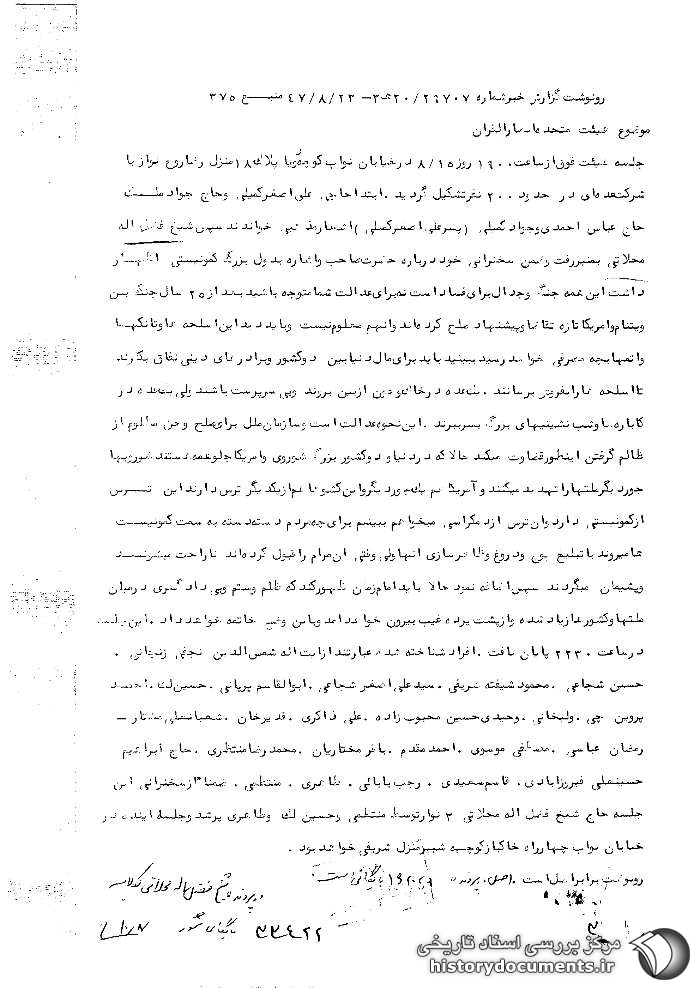 رونوشت گزارش خبر شماره ۲۰/۲۹۷۰۷ ه‍ ۳ - ۴۷/۸/۲۳ منبع ۳۷۵
موضوع هیئت متحده انصار القران
جلسه هیئت فوق از ساعت ۱۹۰۰ روز ۸/۱۵ در خیابان نواب کوچه پلاک ۱۸ منزل رضا روغ نواز با
شرکت عده ای در حدود ۲۰۰ نفر تشکیل گردید . ابتدا حاجی علی اصغر کمیلی وحاج جواد
حاج عباس احمدی وجواد کمیلی (پسر علی اصغر کمیلی) اشعار مذهبی خواندند سپس شیخ فضل اله
محلاتی بمنبر رفت وضمن سخنرانی خود درباره حضرت صاحب واشاره بدول بزرگ کمونیستی اظهار
داشت این همه جنگ وجدال برای فساد است نه برای عدالت شما متوجه باشید بعد از ۲۵ سال جنگ بین
ویتنام وامریکا تازه تقاضا وپیشنهاد صلح کرده اند وانهم معلوم نیست وباید دید این اسلحه ها وتانکها
واتمها بچه مصرفی خواهد رسید ببینید باید برای مال دنیا بین دو کشور وبرادر های دینی نفاق بگذارند
تا اسلحه ها را بفروش برسانند . یک عده در خاک وخون ازبین بروند وبی سرپرست باشند ولی یک عده در
کاباره ها وشب نشینیهای بزرگ بسر ببرند . این نحوه عدالت است وسازمان ملل برای صلح وحق مظلوم از
ظالم گرفتن اینطور قضاوت میکند حالا که در دنیا دو کشور بزرگ شوروی وامریکا جلو همه هستند شورویها
جور دیگر ملتها را تهدید میکنند و آمریکا هم یک جور دیگر واین کشورها هم از یکدیگر ترس دارند این ترس
از کمونیستی دارد وان ترس از دمکراسی میخواهم ببینم برای چه مردم دسته دسته به سمت کمونیست
ها میروند با تبلیغ پوچ ودروغ وظاهر سازی انها ولی وقتی ان مرام را قبول کرده اند ناراحت میشوند
وپشیمان میگردند سپس اضافه نمود حالا باید امام زمان ظهور کند که ظلم وستم وبی دادگری در میان
ملتها وکشورها زیاد شده واز پشت پرده غیب بیرون خواهد امد وباین وضع خاتمه خواهد داد . این جلسه
در ساعت ۲۲۳۰ پایان یافت . افراد شناخته شده عبارتند از ایت اله شمس الدین نجفی زنجانی .
حسین شجاعی . محمود شیفته شریفی . سید علی اصغر شجاعی . ابوالقاسم پریانی . حسین لک . احمد
پروین چی . ولیخانی . وحیدی حسین محبوب زاده . علی ذاکری . قدیرخان . شعبانعلی مختار -
رمضان عباسی . مصطفی موسوی . احمد مقدم . باقر مختاریان . محمد رضا منتظری . حاج ابراهیم
حسینعلی فیروزابادی . قاسم سعیدی . رجب بابائی . طاهری . منتظمی . ضمنا از سخنرانی این
جلسه حاج شیخ فضل اله محلاتی ۲ نوار توسط منتظمی وحسین لک وطاهری پر شد وجلسه اینده در
خیابان نواب چهار راه خاکباز کوچه شبیر منزل شریفی خواهد بود .
رونوشت برابر اصل است . اصل در پرونده بایگانی است
در پرونده شیخ فضل اله محلاتی کلاسه
۳۳۴۲۲
مرکز بررسی اسناد تاریخی
historydocuments.ir